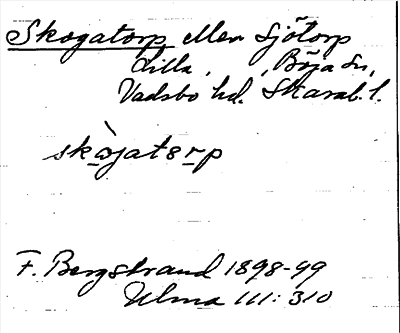 Skogatorp eller Sjötorp
Lilla, , Böja sn,
Vadsbo hd. Skarab. l.
skòjatorp
F. Bergstrand 1898-99
Ulma 111: 310